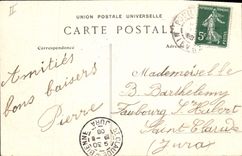 II
UNION POSTALE UNIVERSELLE
CARTE POSTALE
5c
Amitiés
bons baisers
Pierre
Mademoiselle
B. Barthelemy
Faubourg St Hubert
Saint Claude
Jura